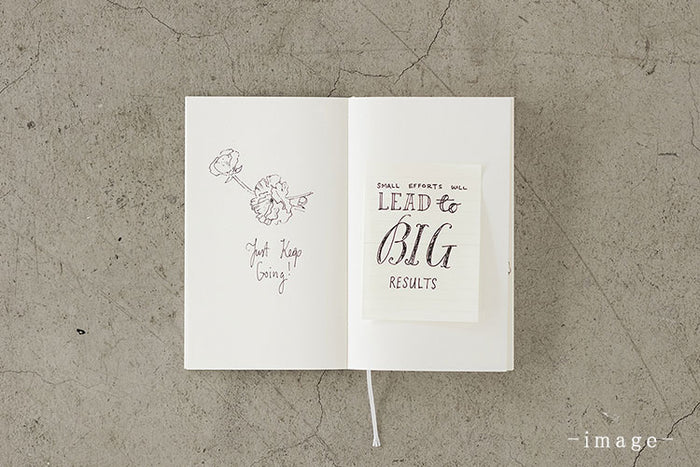 Just Keep
Going!
SMALL EFFORTS WILL
LEAD to
BIG
RESULTS
-image-